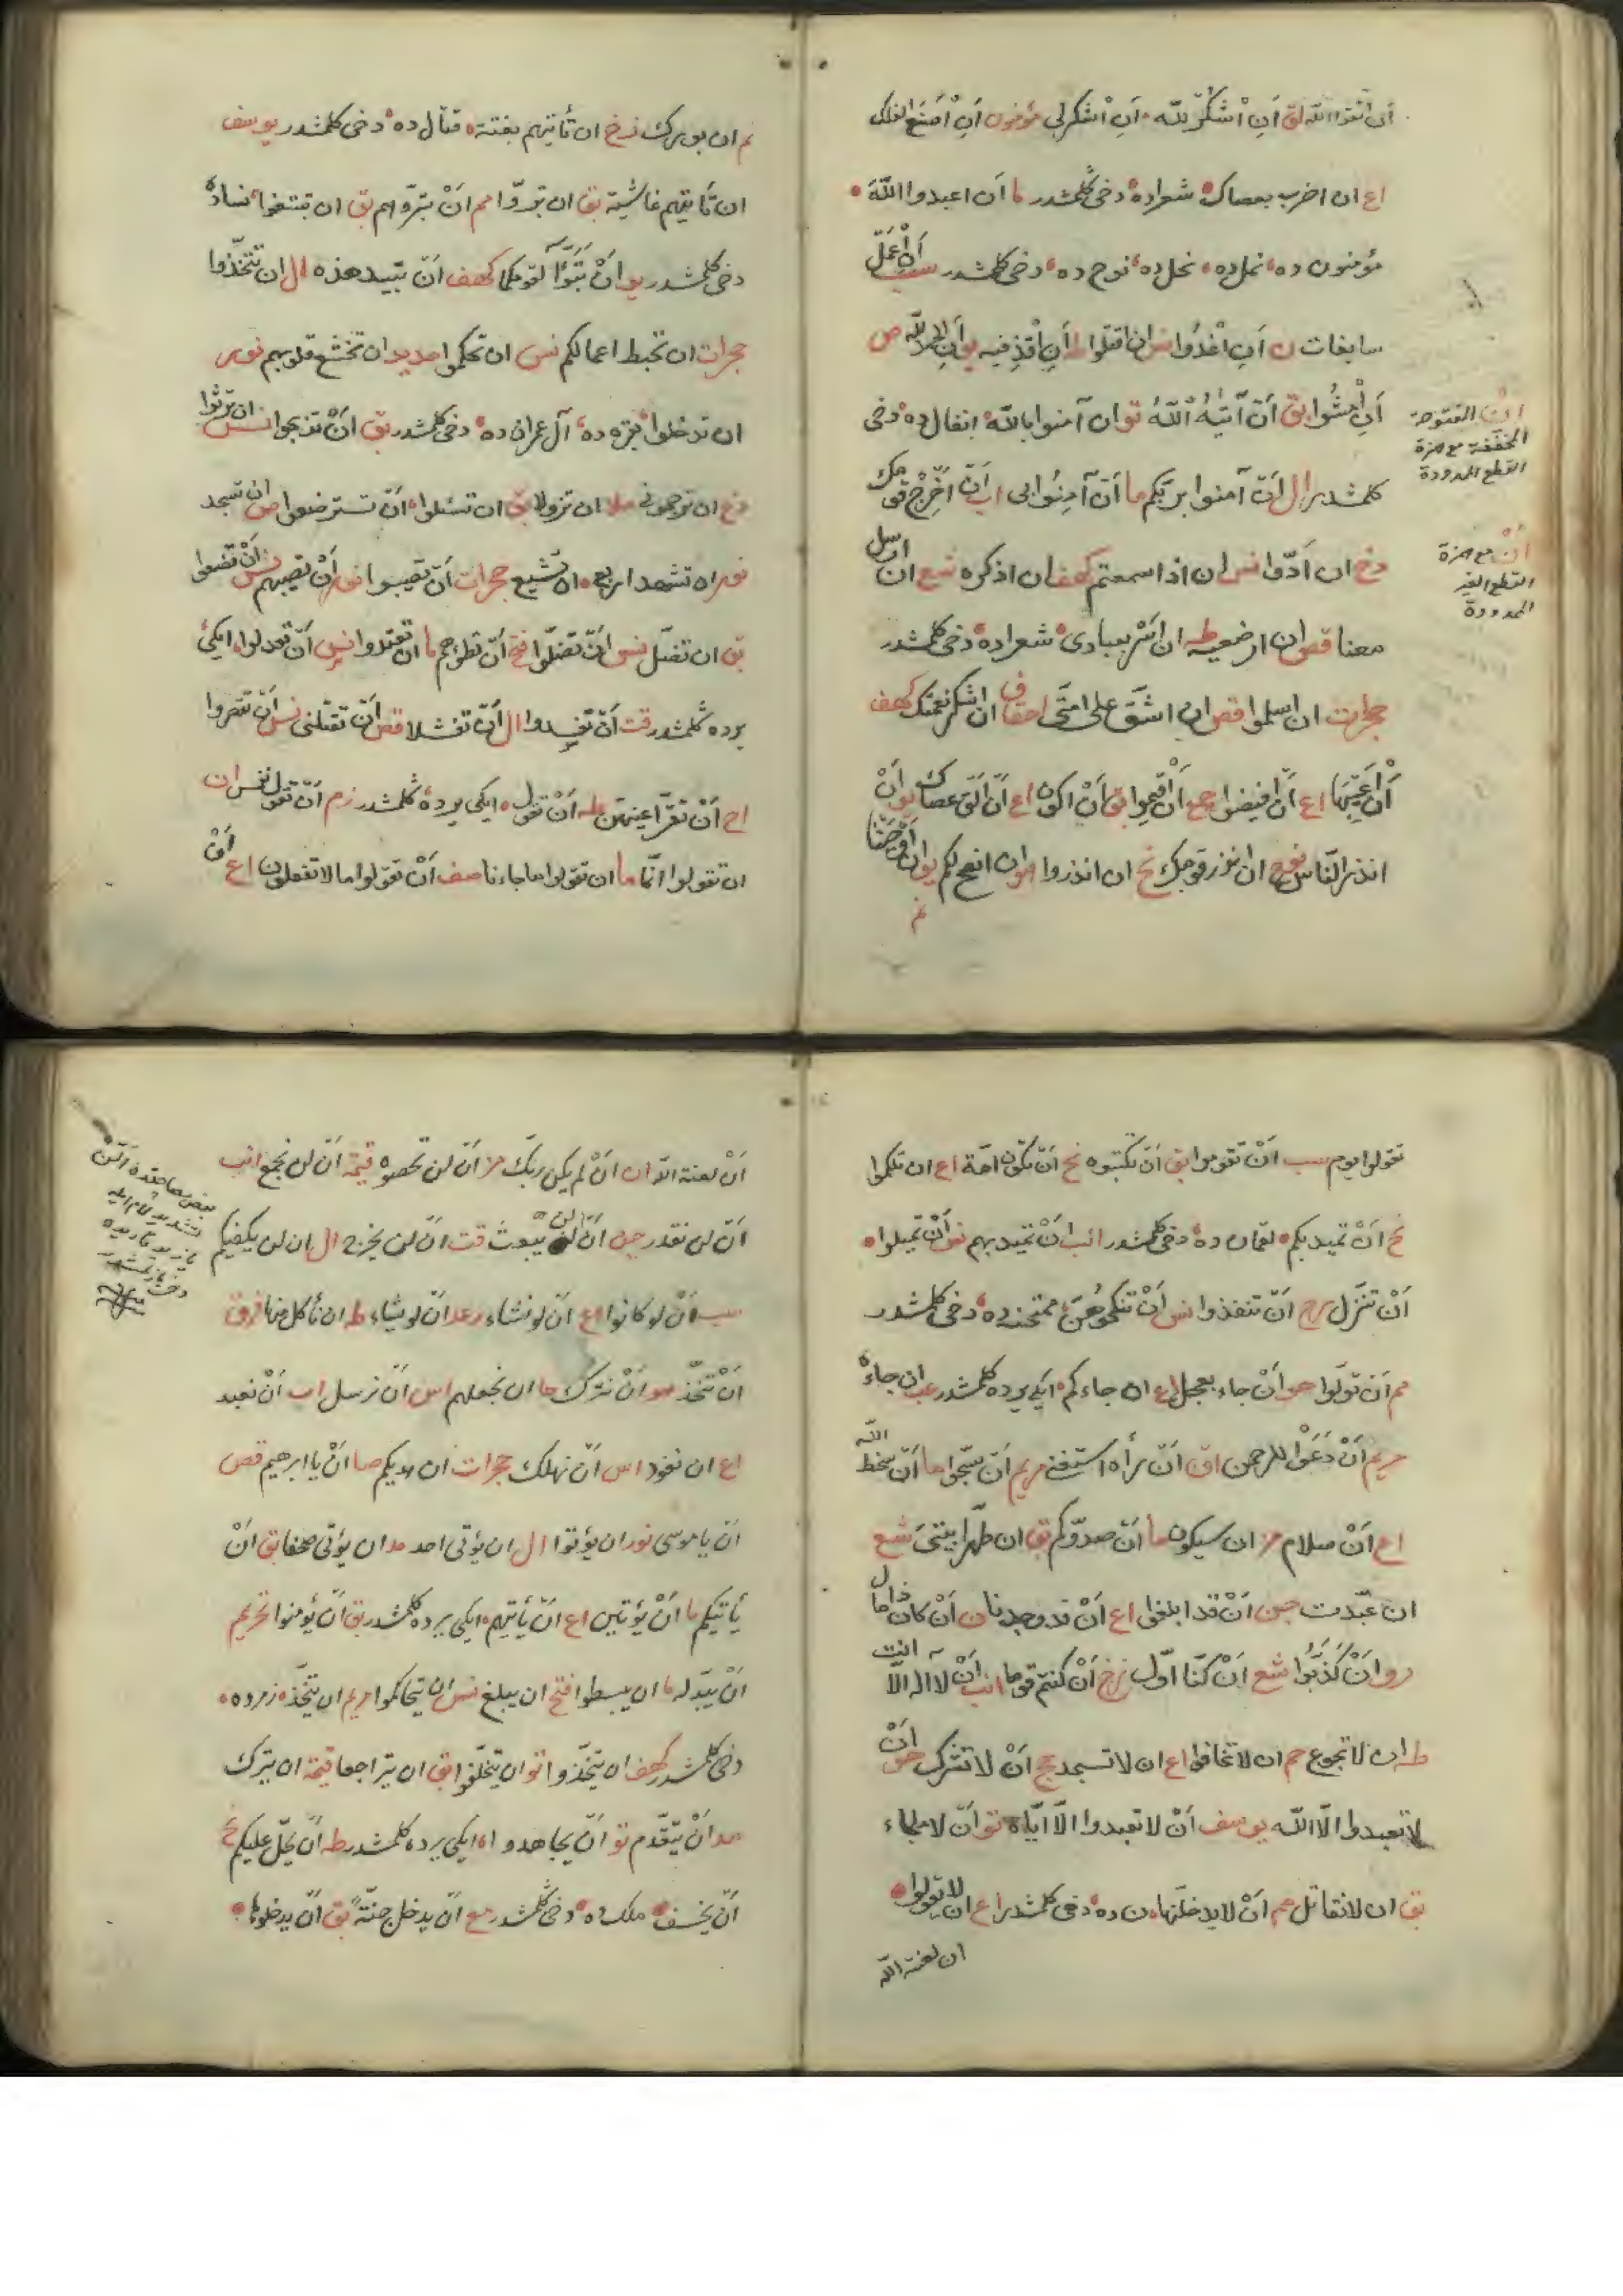 ان اتقوا الله لق أن اشكر لله أن اشكر لى مؤمنون أن اصنع الفلك
اع ان اضرب بعصاك شعراده دخى كلمشدر ما أن اعبدوا الله
مؤمنون ده نمل ده نحل ده نوح ده دخى كلمشدر سب أن اعمل
سابغات ن أن اغدوا نس ان اقتلوا طه أن اقذفيه يو ان الحمد لله ص
أن امشوا بق أن آتيه الله تو ان آمنوا بالله انفال ده دخى
كلمشدر ال أن آمنوا بربكم ما أن آمنوا بى اب أن اخرج قومك
دخ ان ادوا نس ان اذا سمعتم كهف ان اذكره شع ان ارسل
معنا قص ان ارضعيه طه ان اسر بعبادى شعراده دخى كلمشدر
حجرات ان اسلموا قص ان اشق على امتى احقاف ان اشكر نعمتك كهف
أن اعيبها اع أن افيضوا حج أن اقيموا بق أن اكون اع أن الق عصاك يو أن
انذر الناس نوح ان انذر قومك نح ان انذروا هو ان انصح لكم يو ان اوحينا
ان المفتوحة
المخففة مع همزة
القطع الممدودة
أن مع همزة
القطع الغير
الممدودة
نم ان بورك زخ ان تأتيهم بغتة قتال ده دخى كلمشدر يوسف
ان تأتيهم غاشية بق ان تبروا مم أن تبروهم بق ان تبتغوا نساده
دخى كلمشدر يو أن تبوآ لقومكما كهف أن تبيد هذه ال ان تتخذوا
حجرات ان تحبط اعمالكم نس ان تحكموا حديد ان تخشع قلوبهم نور
ان تدخلوا بقره ده آل عمران ده دخى كلمشدر بق أن تذبحوا نس ان ترثوا
دخ ان ترجمونى ملا ان تزولا بق ان تسئلوا أن تسترضعوا ص ان تسجد
نور ان تشهد اربع ان تشيع حجرات أن تصيبوا نور أن تصيبهم نس أن تضعوا
بق ان تضل نس أن تضلوا فتح أن تطؤهم ما ان تعتدوا نس أن تعدلوا ايكى
يرده كلمشدر قت أن تفسدوا ال أن تفشلا قص أن تقتلنى نس أن تقصروا
اح أن تقر اعينهن طه أن تقول ايكى يرده كلمشدر زم أن تقول نفس ان
ان تقولوا انما ما ان تقولوا ما جاءنا صف أن تقولوا ما لا تفعلون اع أن
تقولوا يوم سب أن تقوموا بق أن تكتبوه نح أن تكون امة اع ان تلكموا
نح أن تميد بكم لقمان ده دخى كلمشدر انب أن تميد بهم نس أن تميلوا
أن تنزل رح أن تنفذوا نس أن تنكحوهن ممتحنه ده دخى كلمشدر
مم أن تولوا هو أن جاء بعجل اع ان جاءكم ايكى يرده كلمشدر عب ان جاءه
مريم أن دعوا للرحمن اق أن رأه استغنى مريم أن سبحوا ما أن سخط الله
اع أن سلام مز ان سيكون ما أن صدوكم بق ان طهرا بيتى شع
ان عبدت جن أن قد ابلغوا اع أن قد وجدنا ن أن كان ذا مال
رو أن كذبوا شع أن كنا اول زخ أن كنتم قوما انب أن لا اله الا انت
طه ان لا تجوع حم ان لا تخافوا اع ان لا تسجد حج أن لا تشرك هو أن
لا تعبدوا الا الله يوسف أن لا تعبدوا الا اياه تو أن لا ملجاء
بق ان لا نقاتل مم أن لا يدخلنها ن ده دخى كلمشدر اع ان لا تقولوا
ان لعنة الله
أن لعنة الله ان أن لم يكن ربك مز أن لن تحصوه قيمة أن لن نجمع انب
أن لن نقدر جن أن لن يبعث قت أن لن يخرج ال ان لن يكفيكم
سب أن لو كانوا اع أن لو نشاء رعد أن لو يشاء طه ان نأكل منها فرق
أن نتخذ هو أن نترك جا ان نجعلهم اس أن نرسل اب أن نعبد
اع ان نعود اس أن نهلك حجرات ان هديكم صا أن يا ابرهيم قص
أن يا موسى نور ان يؤتوا ال ان يؤتى احد مد ان يؤتى صحفا بق أن
يأتيكم ما أن يؤتين اع أن يأتيهم ايكى يرده كلمشدر بق أن يؤمنوا تحريم
أن يبدله ما ان يبسطوا فتح ان يبلغ نس ان يتحاكموا مريم ان يتخذ زمرده
دخى كلمشدر كهف ان يتخذوا تو ان يتخلفوا بق ان يتراجعا قيمة ان يترك
مد أن يتقدم تو أن يجاهدوا ايكى يرده كلمشدر طه أن يحل عليكم نح
أن يخسف ملك ده دخى كلمشدر مع أن يدخل جنة بق أن يدخلوها
بعض مصاحفده ألن